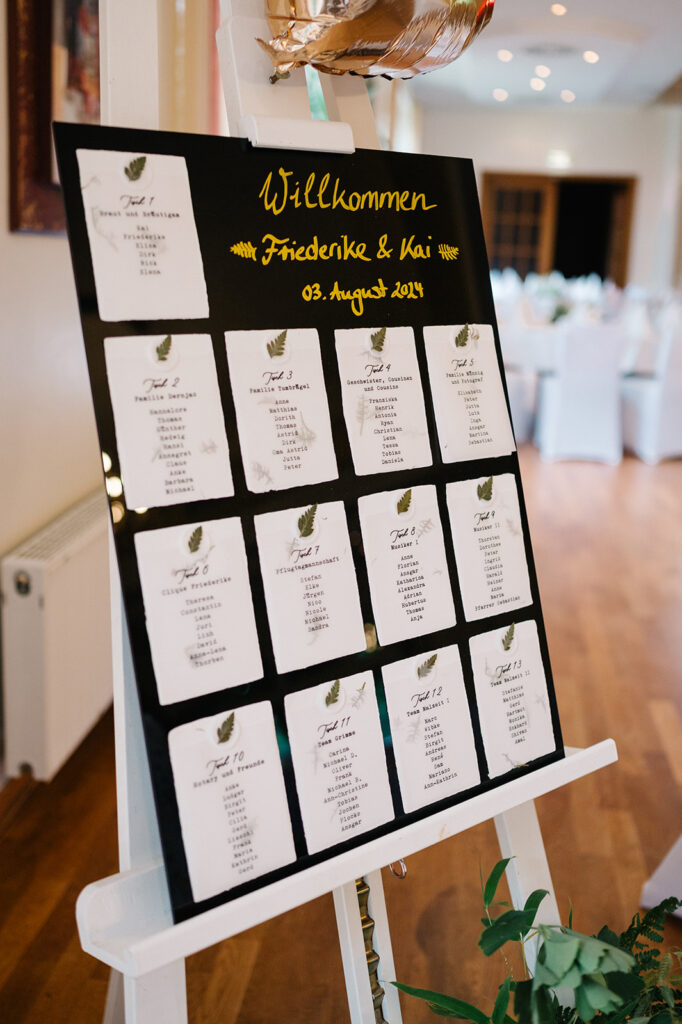 Willkommen
Friederike & Kai
03. August 2024
Tisch 1
Braut und Bräutigam
Kai
Friederike
Elisa
Dirk
Rick
Elena
Tisch 2
Familie Dernjac
Hannelore
Thomas
Günther
Hedwig
Hansi
Annegret
Claus
Anke
Barbara
Michael
Tisch 3
Familie Tumbrägel
Anne
Matthias
Dorith
Thomas
Astrid
Dirk
Oma Astrid
Jutta
Peter
Tisch 4
Geschwister, Cousinen
und Cousins
Franziska
Henrik
Antonia
Ryan
Christian
Lena
Tessa
Tobias
Daniela
Tisch 5
und Fotograf
Elisabeth
Peter
Jutta
Lutz
Inga
Ansgar
Martina
Sebastian
Tisch 6
Clique Friederike
Theresa
Constantin
Lena
Juri
Linh
David
Anna-Lena
Thorben
Tisch 7
Pflugtagmannschaft
Stefan
Elke
Jürgen
Nico
Nicole
Michael
Sandra
Tisch 8
Musiker I
Anne
Florian
Ansgar
Katharina
Alexandra
Adrian
Hubertus
Thomas
Anja
Tisch 9
Musiker II
Thorsten
Dorothee
Peter
Ingrid
Claudia
Harald
Heiner
Anne
Maria
Pfarrer Sebastian
Tisch 10
Rotary und Freunde
Anke
Ludger
Birgit
Peter
Cilia
Gerd
Liesel
Frank
Maria
Kathrin
Gerd
Tisch 11
Team Grimme
Carina
Michael D.
Olaf
Frank
Michael H.
Ann-Christine
Tobias
Jochen
Fiocko
Ansgar
Tisch 12
Team Malzeit I
Marc
Wibke
Stefan
Birgit
Andreas
René
Sam
Mariano
Ann-Kathrin
Tisch 13
Team Malzeit II
Stefanie
Matthias
Gerd
Hartmut
Monika
Eckhard
Shirin
Amal